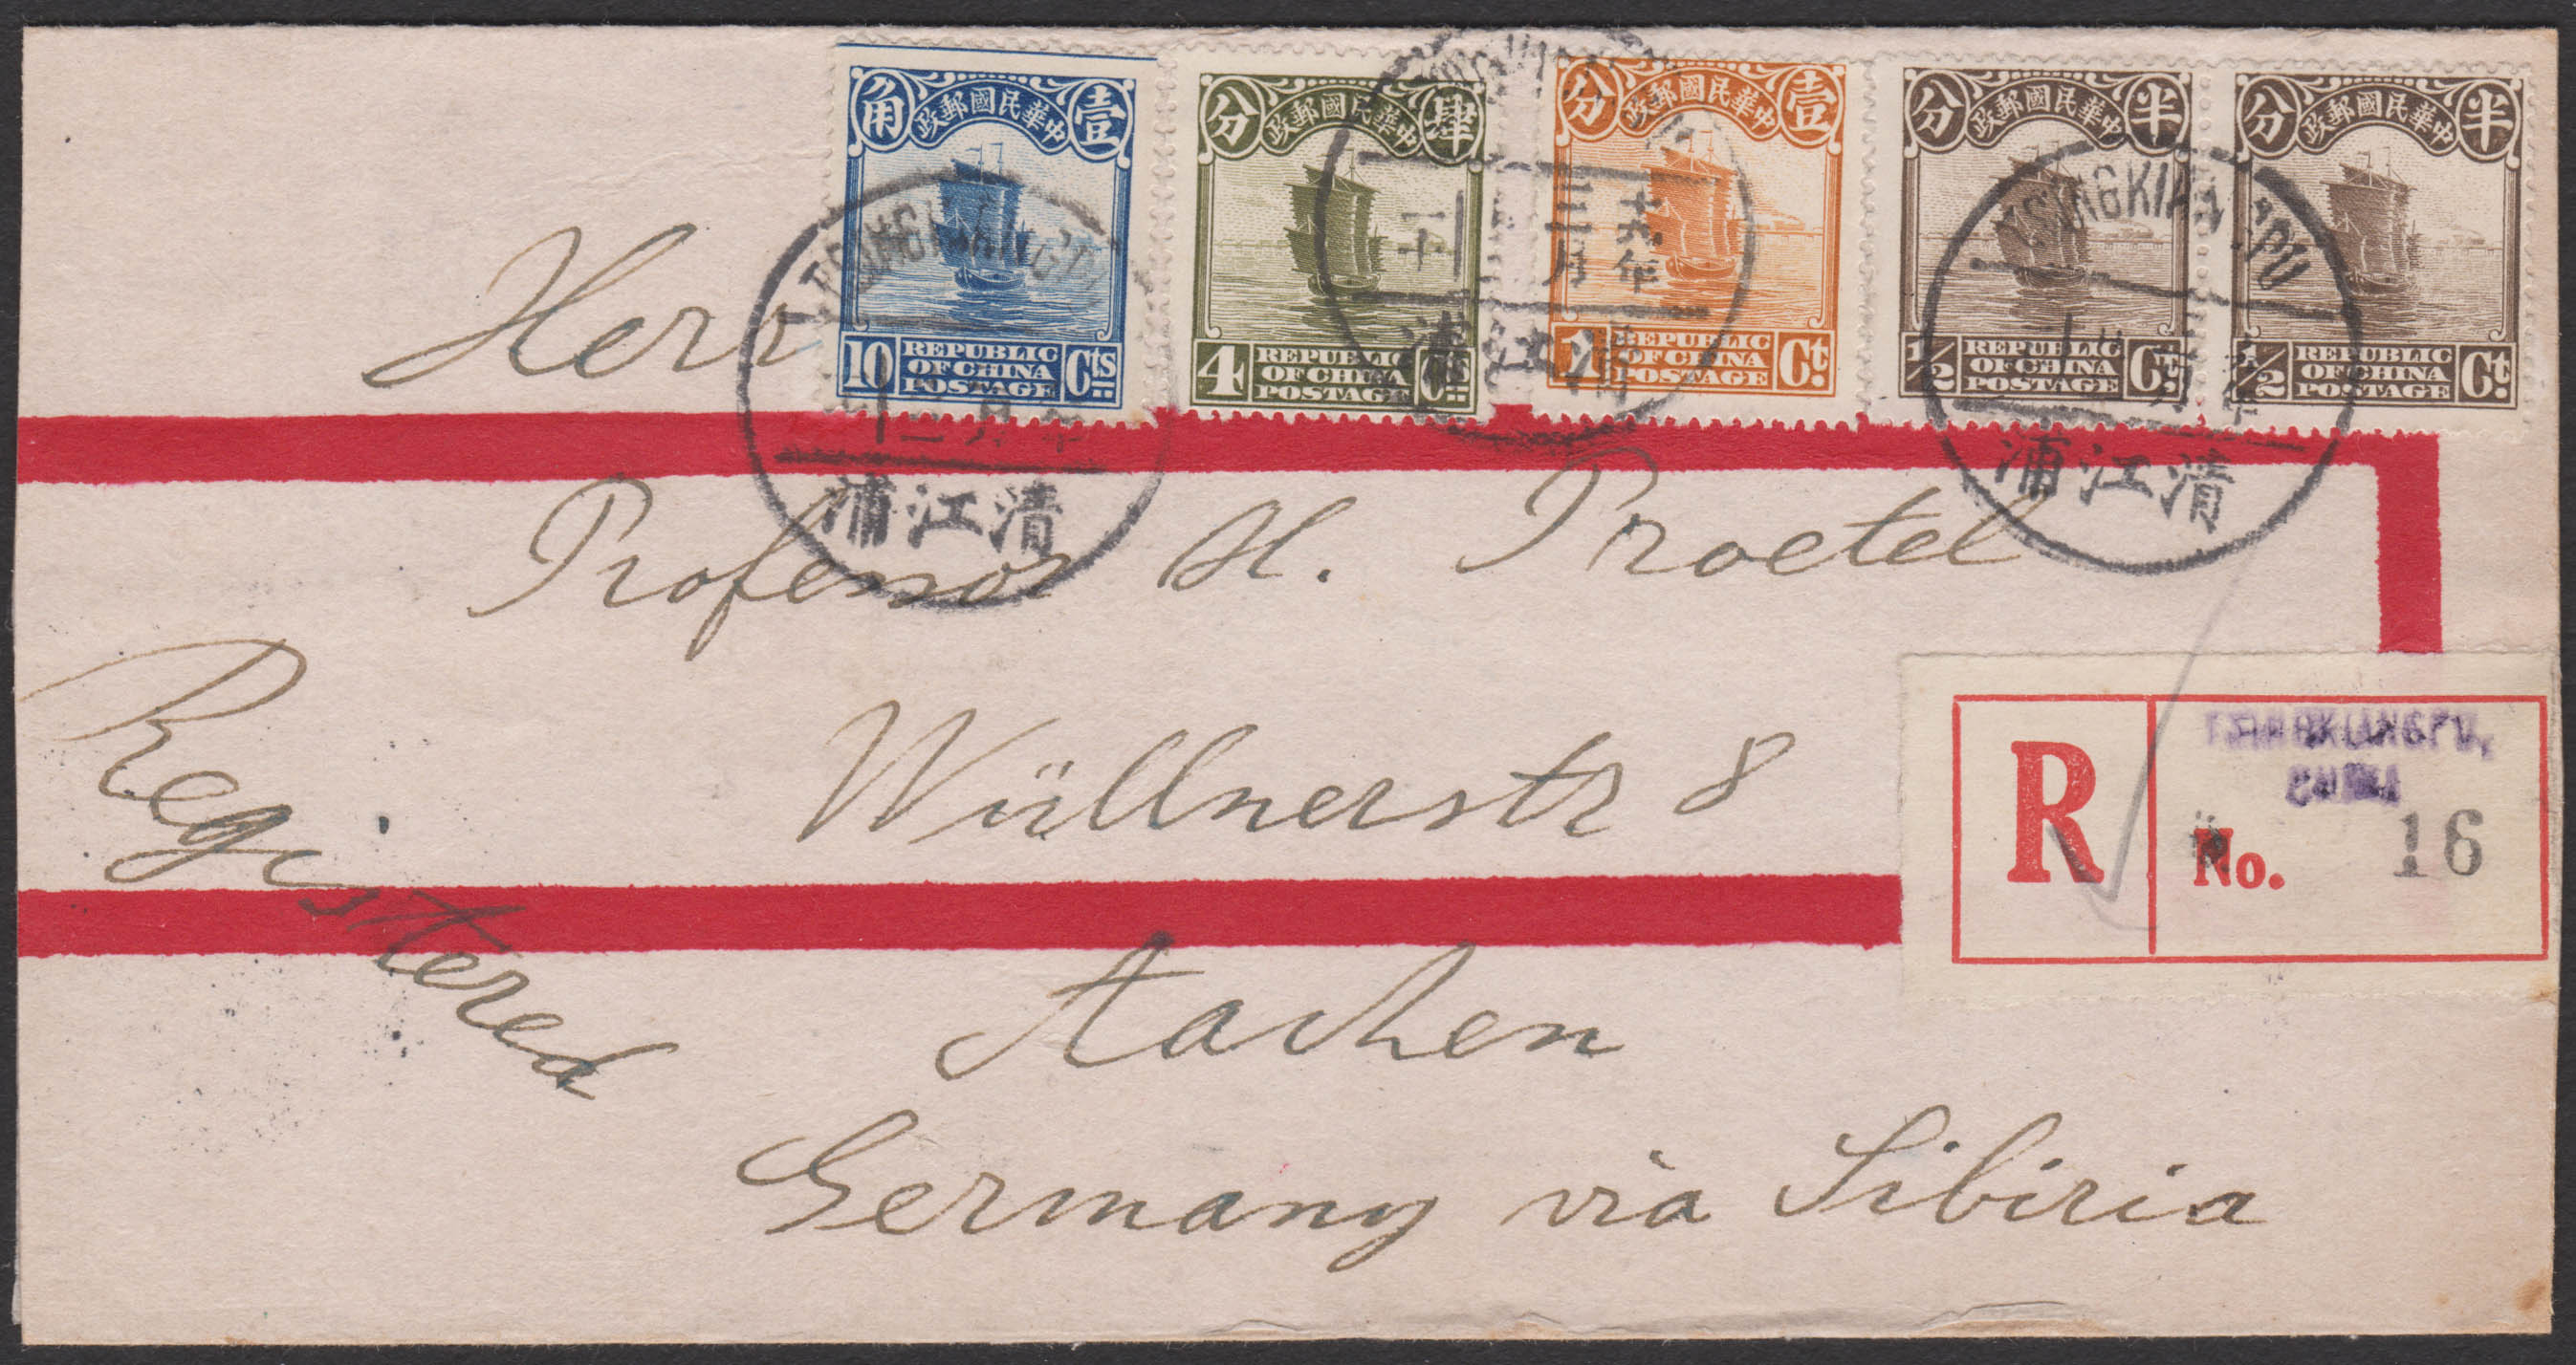 角 中華民國郵政 壹
10 REPUBLIC OF CHINA POSTAGE Cts
分 中華民國郵政 肆
4 REPUBLIC OF CHINA POSTAGE Cts
分 中華民國郵政 壹
1 REPUBLIC OF CHINA POSTAGE Ct.
分 中華民國郵政 半
1/2 REPUBLIC OF CHINA POSTAGE Ct.
分 中華民國郵政 半
1/2 REPUBLIC OF CHINA POSTAGE Ct.
TSINGKIANGPU
清江浦
月 年
清江浦
TSINGKIANGPU
清江浦
Herr
Professor H. Proetel
Wüllnerstr 8
Aachen
Germany via Sibiria
Registered
R
TSINGKIANGPU,
CHINA
No. 16